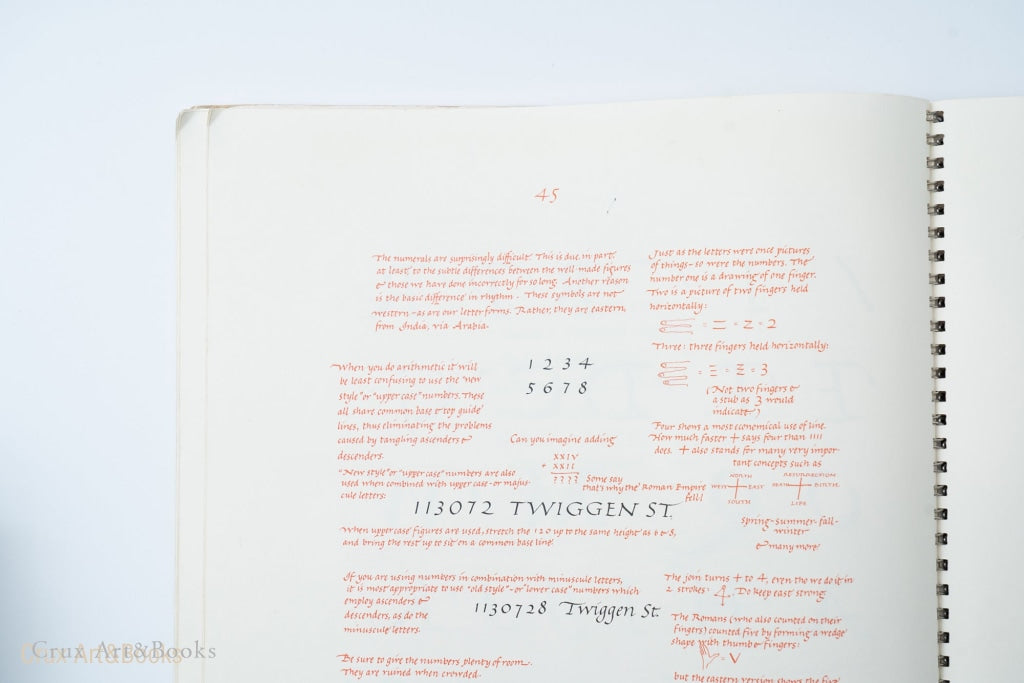 45
The numerals are surprisingly difficult. This is due, in part,
at least, to the subtle differences between the well made figures
& those we have done incorrectly for so long. Another reason
is the basic difference in rhythm. These symbols are not
western - as are our letter forms. Rather, they are eastern,
from India, via Arabia.
When you do arithmetic it will
be least confusing to use the "new
style" or "upper case" numbers. These
all share common base & top guide
lines, thus eliminating the problems
caused by tangling ascenders &
descenders.
1 2 3 4
5 6 7 8
Can you imagine adding
XXIV
+ XXII
????
Some say
that's why the Roman Empire
fell!
"New style" or "upper case" numbers are also
used when combined with upper case - or majus-
cule letters:
113072 TWIGGEN ST.
When upper case figures are used, stretch the 1 2 0 up to the same height as 6 & 8,
and bring the rest up to sit on a common base line.
If you are using numbers in combination with minuscule letters,
it is most appropriate to use "old style" - or "lower case" numbers which
employ ascenders &
descenders, as do the
minuscule letters.
1130728 Twiggen St.
Be sure to give the numbers plenty of room.
They are ruined when crowded.
Just as the letters were once pictures
of things - so were the numbers. The
number one is a drawing of one finger.
Two is a picture of two fingers held
horizontally:
= = = Z = 2
Three: three fingers held horizontally:
= Ξ = Ξ = 3
(Not two fingers &
a stub as 3 would
indicate)
Four shows a most economical use of line.
How much faster + says four than 1111
does. + also stands for many very impor-
tant concepts such as
NORTH
WEST EAST
SOUTH
RESURRECTION
DEATH BIRTH
LIFE
spring-summer-fall-
winter
& many more
The join turns + to 4, even tho we do it in
2 strokes: 4. Do keep east strong.
The Romans (who also counted on their
fingers) counted five by forming a wedge
shape with thumb & fingers:
= V
but the eastern version shows the five
Crux Art&Books